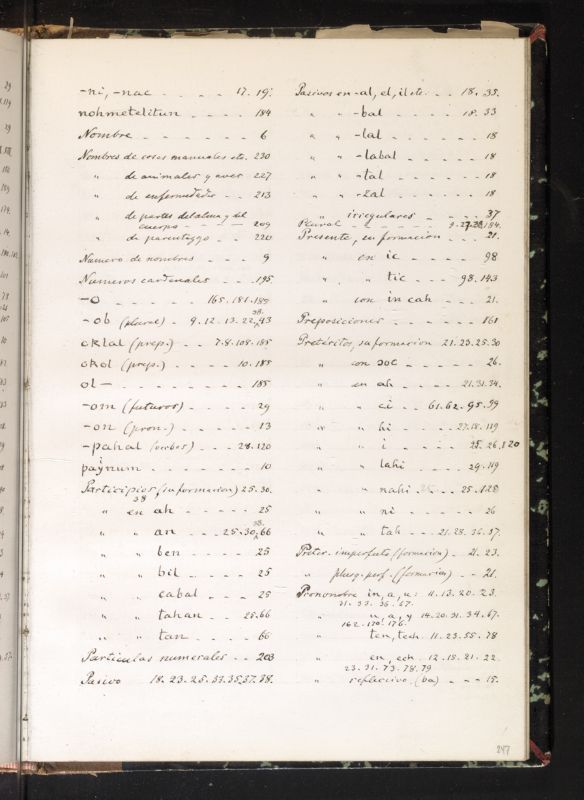 -ni, -nac - - - - - 17. 19.
nohmetelitun - - - - 184
Nombre - - - - - - 6
Nombres de cosas manuales etc. 230
" de animales y aves 227
" de enfermedades - - 213
" de partes del alma y del
cuerpo - - - - - 209
" de parentezgo - - 220
Numero de nombres - - - 9
Numeros cardinales - - - 195
-o - - - - - 165. 181. 189
38.
-ob (plural) - 9. 12. 13. 22. 43
oklal (prep.) - - 7. 8. 108. 185
okol (prep.) - - - - 10. 185
ol- - - - - - - - 185
-om (futuros) - - - - 29
-on (pron.) - - - - - 13
-pahal (verbos) - - - 28. 120
paynum - - - - - - 10
Participios (su formacion) 25. 30.
38
" en ah - - - - - 25
38.
" " an - - - 25. 30. 66
" " ben - - - - 25
" " bil - - - - 25
" " cabal - - - 25
" " tahan - - - 25. 66
" " tan - - - - 66
Particulas numerales - - 203
Pasivo 18. 23. 25. 33. 35. 37. 38.
Pasivos en -al, el, il etc. - - 18. 35.
" " -bal - - - - 18. 33
" " -lal - - - - - 18
" " -labal - - - - 18
" " -tal - - - - - 18
" " -zal - - - - - 18
" irregulares - - - - 37
Plural - - - - - 9. 27. 38. 184.
Presente, su formacion - - - 21.
" en ic - - - - - 98
" " tic - - - 98. 143
" con in cah - - - 21.
Preposiciones - - - - - 161
Pretéritos, su formacion 21. 23. 25. 30
" con ꜿoc - - - - - 26.
" en ah - - - - 21. 31. 34.
" " ci - - 61. 62. 95. 99
" " hi - - - - 27. 28. 119
" " i - - - - - 25. 26. 120
" " lahi - - - - 29. 119
" " nahi - - - 25. 125
" " ni - - - - - 26
" " tah - - - 21. 28. 36. 37.
Preter. imperfecto (formacion) - 21. 23.
" plusq. perf. (formacion) - - 21.
Pronombre in, a, u: 11. 13. 20. 23.
31. 33. 36. 67.
" u, a, y 14. 20. 31. 34. 67.
162. 170. 176.
" ten, tech 11. 23. 55. 78
" en, ech 12. 15. 21. 22.
23. 31. 73. 78. 79
" reflecivo (ba) - - - 15.
247